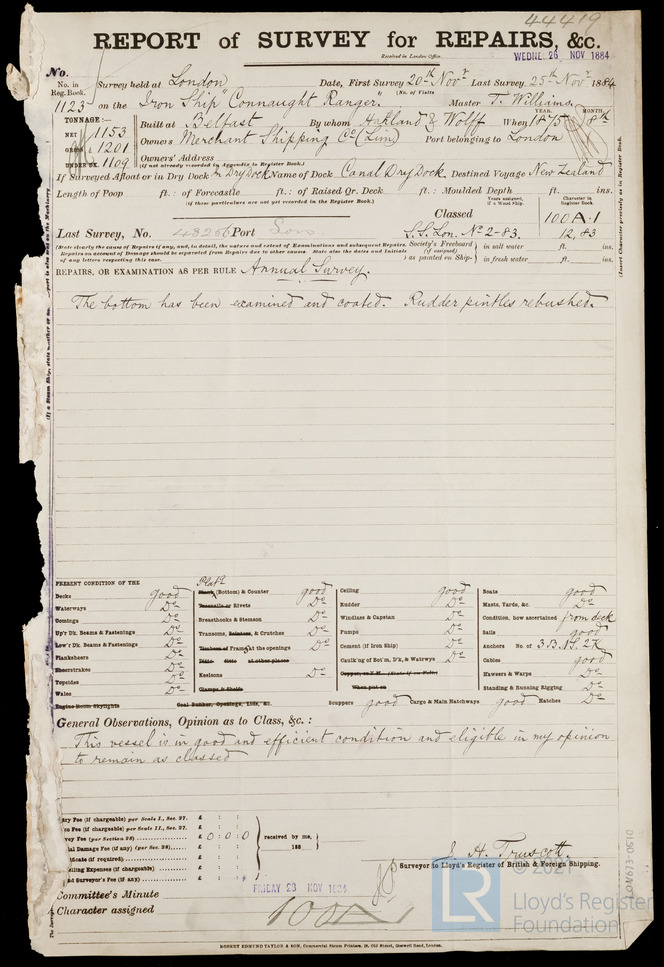 44419
REPORT of SURVEY for REPAIRS, &c.
Received in London Office
WEDNE. 26 NOV 1884
No.
No. in Reg. Book. Survey held at London Date, First Survey 20th Novr Last Survey 25th Novr 1884
(No. of Visits
1123 on the Iron Ship "Connaught Ranger. Master T. Williams
TONNAGE:—
NET 1153
GROSS 1201
UNDER DK. 1109
Built at Belfast By whom Harland & Wolff When 1875 8th
YEAR. MONTH.
Owners Merchant Shipping Co (Lim) Port belonging to London
Owners' Address
(if not already recorded in Appendix to Register Book.)
If Surveyed Afloat or in Dry Dock In Dry Dock Name of Dock Canal Dry Dock Destined Voyage New Zealand
Length of Poop ft.: of Forecastle ft.: of Raised Qr. Deck ft.: Moulded Depth ft. ins.
(if these particulars are not yet recorded in the Register Book.)
Years assigned, if a Wood Ship. Character in Register Book.
Last Survey, No. 48266 Port Lon Classed 100 A.1
S.S. Lon. No 2-83. 12,83
(State clearly the cause of Repairs if any, and, in detail, the nature and extent of Examinations and subsequent Repairs. Repairs on account of Damage should be separated from Repairs due to other causes. State also the dates and initials of any letters respecting this case.
Society's Freeboard (if assigned) as painted on Ship— in salt water ft. ins.
in fresh water ft. ins.
REPAIRS, OR EXAMINATION AS PER RULE Annual Survey.
The bottom has been examined and coated. Rudder pintles rebushed.
PRESENT CONDITION OF THE
Decks good
Waterways Do
Comings Do
Up'r Dk. Beams & Fastenings Do
Low'r Dk. Beams & Fastenings Do
Planksheers Do
Sheerstrakes Do
Topsides Do
Wales Do
Engine Room Skylights
Platg
(Bottom) & Counter good
Treenails or Rivets Do
Breasthooks & Stemson Do
Transoms, Pointers, & Crutches Do
Timbers of Frame at the openings Do
Ditto ditto at other places
Keelsons Do
Clamps & Shelfs
Coal Bunker, Openings, Lids, &c.
Ceiling good
Rudder Do
Windlass & Capstan Do
Pumps Do
Cement (if Iron Ship) Do
Caulk'ng of Bot'm, D'k, & Watrwys Do
When put on
Scuppers good Cargo & Main Hatchways good Hatches Do
Boats good
Masts, Yards, &c. Do
Condition, how ascertained from deck
Sails good
Anchors No. of 3 B. 1 S. 2 K
Cables good
Hawsers & Warps Do
Standing & Running Rigging Do
General Observations, Opinion as to Class, &c. :
This vessel is in good and efficient condition and eligible in my opinion
to remain as classed
Fee (if chargeable) per Scale I., Sec. 27. £ : :
Fee (if chargeable) per Scale II., Sec. 27. £ : :
Fee (per Section 28) £ 0 : 0 : 0
Damage Fee (if any) (per Sec. 28) £ : :
(if required) £ : :
Expenses (if chargeable) £ : :
Surveyor's Fee (if any) £ : :
received by me,
188
J. H. Truscott.
Surveyor to Lloyd's Register of British & Foreign Shipping.
Committee's Minute FRIDAY 28 NOV 1884
Character assigned 100A1
ROBERT EDMUND TAYLOR & SON, Commercial Steam Printers, 19, Old Street, Goswell Road, London.
(Insert Character precisely as in Register Book.
LON673-0510
LR
© 2021
Lloyd's Register
Foundation